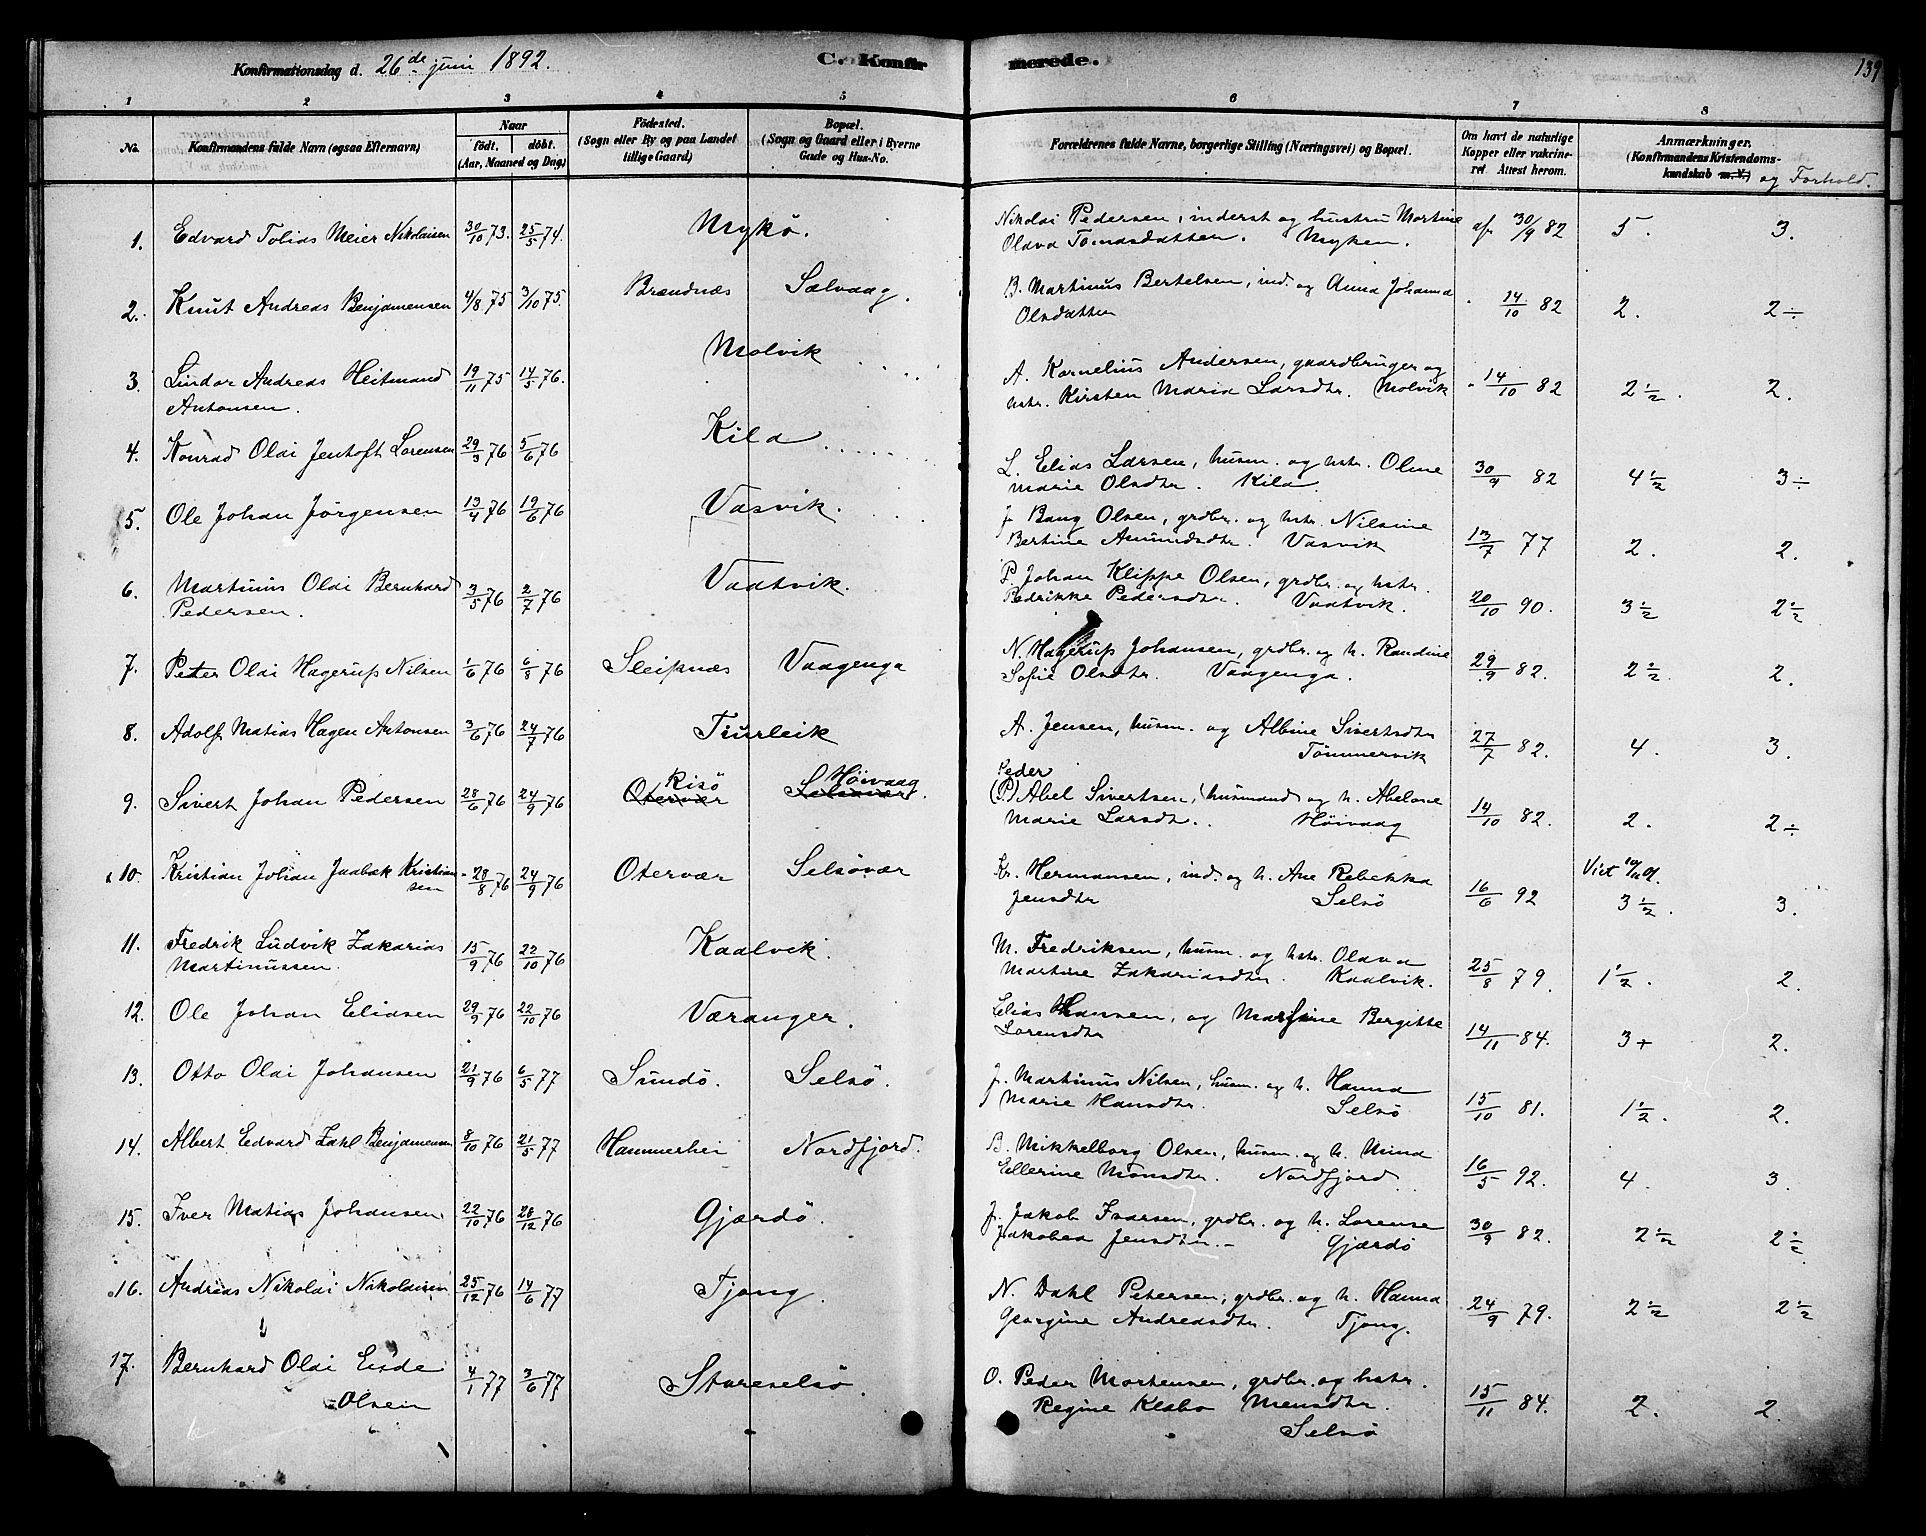 Konfirmationsdag d. 26de juni 1892.
C. Konfirmerede.
139
1 2 3 4 5 6 7 8
No.
Konfirmandens fulde Navn (ogsaa Efternavn)
Naar
födt. döbt.
(Aar, Maaned og Dag)
Födested.
(Sogn eller By og paa Landet tillige Gaard)
Bopæl.
(Sogn og Gaard eller i Byerne Gade og Hus-No.
Forældrenes fulde Navne, borgerlige Stilling (Næringsvei) og Bopæl.
Om havt de naturlige Kopper eller vakcineret. Attest herom.
Anmærkninger.
(Konfirmandens Kristendomskundskab m. V.) og Forhold.
1. Edvard Tobias Meier Nikolaisen 30/10 73. 25/5 74. Mykö. Nikolai Pedersen, inderst og hustru Martine af 30/9 82 5. 3.
Olava Tomasdatter. Myken.
2. Knut Andreas Benjamensen 4/8 75 3/10 75. Brændnæs Sælvaag. B. Martinus Bertelsen, ind. og Anna Johanna " 14/10 82 2. 2÷
Olsdatter
3. Lindor Andreas Heitmand 19/11 75 14/5 76. Molvik A. Kornelius Andersen, gaardbruger og " 14/10 82 2½. 2.
Antonsen. hstr. Kirsten Maria Larsdtr. Molvik
4. Konrad Olai Jentoft Lorensen 29/3 76 5/6 76 Kila L. Elias Larsen, husm. og hstr. Oline 30/9 82 4½ 3÷
Marie Olsdtr. Kila.
5. Ole Johan Jörgensen 13/4 76 19/6 76 Vasvik. J. Bang Olsen, grdbr. og hstr. Nilsine 13/7 77 2. 2.
Bertine Amundsdtr. Vasvik
6. Martinus Olai Bernhard 3/5 76 2/7 76 Vaatvik. P. Johan Klippe Olsen, grdbr. og hstr. 20/10 90. 3½ 2½
Pedersen. Fredrikke Pedersdtr. Vaatvik.
7. Peter Olai Hagerup Nilsen 1/6 76 6/8 76 Sleipnæs Vaagenga N. Hagerup Johansen, grdbr. og h. Randine 29/9 82. 2½. 2.
Sofie Olsdtr. Vaagenga.
8. Adolf Matias Hagen Antonsen 3/6 76 24/7 76 A. Jensen, husm. og Albine Sivertsdtr 27/7 82. 4. 3.
Tömmervik
9. Sivert Johan Pedersen 28/6 76 24/9 76 Otervær Risö Selsövær Höivaag. (P.) Peder Abel Sivertsen, husmand og h. Abelone 14/10 82. 2. 2÷
Marie Larsdtr. Höivaag
10. Kristian Johan Jaabæk Kristiansen 28/8 76 24/9 76 Otervær Selsövær Kr. Hermansen, ind. og h. Ane Rebekka 16/6 92 Viet 3½. 3.
Jensdtr Selsö
11. Fredrik Ludvik Zakarias 15/9 76 22/10 76 Kaalvik. M. Fredriksen, husm. og hstr. Olava 25/8 79. 1½. 2.
Martinussen. Martine Zakariasdtr. Kaalvik.
12. Ole Johan Eliasen 29/9 76 22/10 76 Væranger. Elias Hansen, og Marsine Bergitte 14/11 84. 3+ 2.
Lorensdtr
13. Otto Olai Johansen 21/9 76 6/5 77 Sundö. Selsö. J. Martinus Nilsen, husm. og h. Hanna 15/10 81. 1½. 2.
Marie Hansdtr. Selsö
14. Albert Edvard Zahl Benjamensen 8/10 76 21/5 77 Hammerhei Nordfjord. B. Mikkelborg Olsen, husm. og h. Mina 16/5 92. 4. 3.
Ellerine Monsdtr. Nordfjord
15. Iver Matias Johansen 22/10 76 28/12 76 Gjærdö. J. Jakob Ivarsen, grdbr. og h. Lorense 30/9 82. 2½ 2½
Jakobea Jensdtr. Gjærdö
16. Andreas Nikolai Nikolaisen 25/12 76 14/6 77 Tjong. N. Dahl Petersen, grdbr. og h. Hanna 24/9 79. 2½ 2½
Georgine Andreasdtr. Tjong.
17. Bernhard Olai Eide 4/1 77 3/6 77 Storeselsö. O. Peder Mortensen, grdbr. og hstr. 15/11 84. 2. 2.
Olsen Regine Klabo Mensdtr.
Selsö